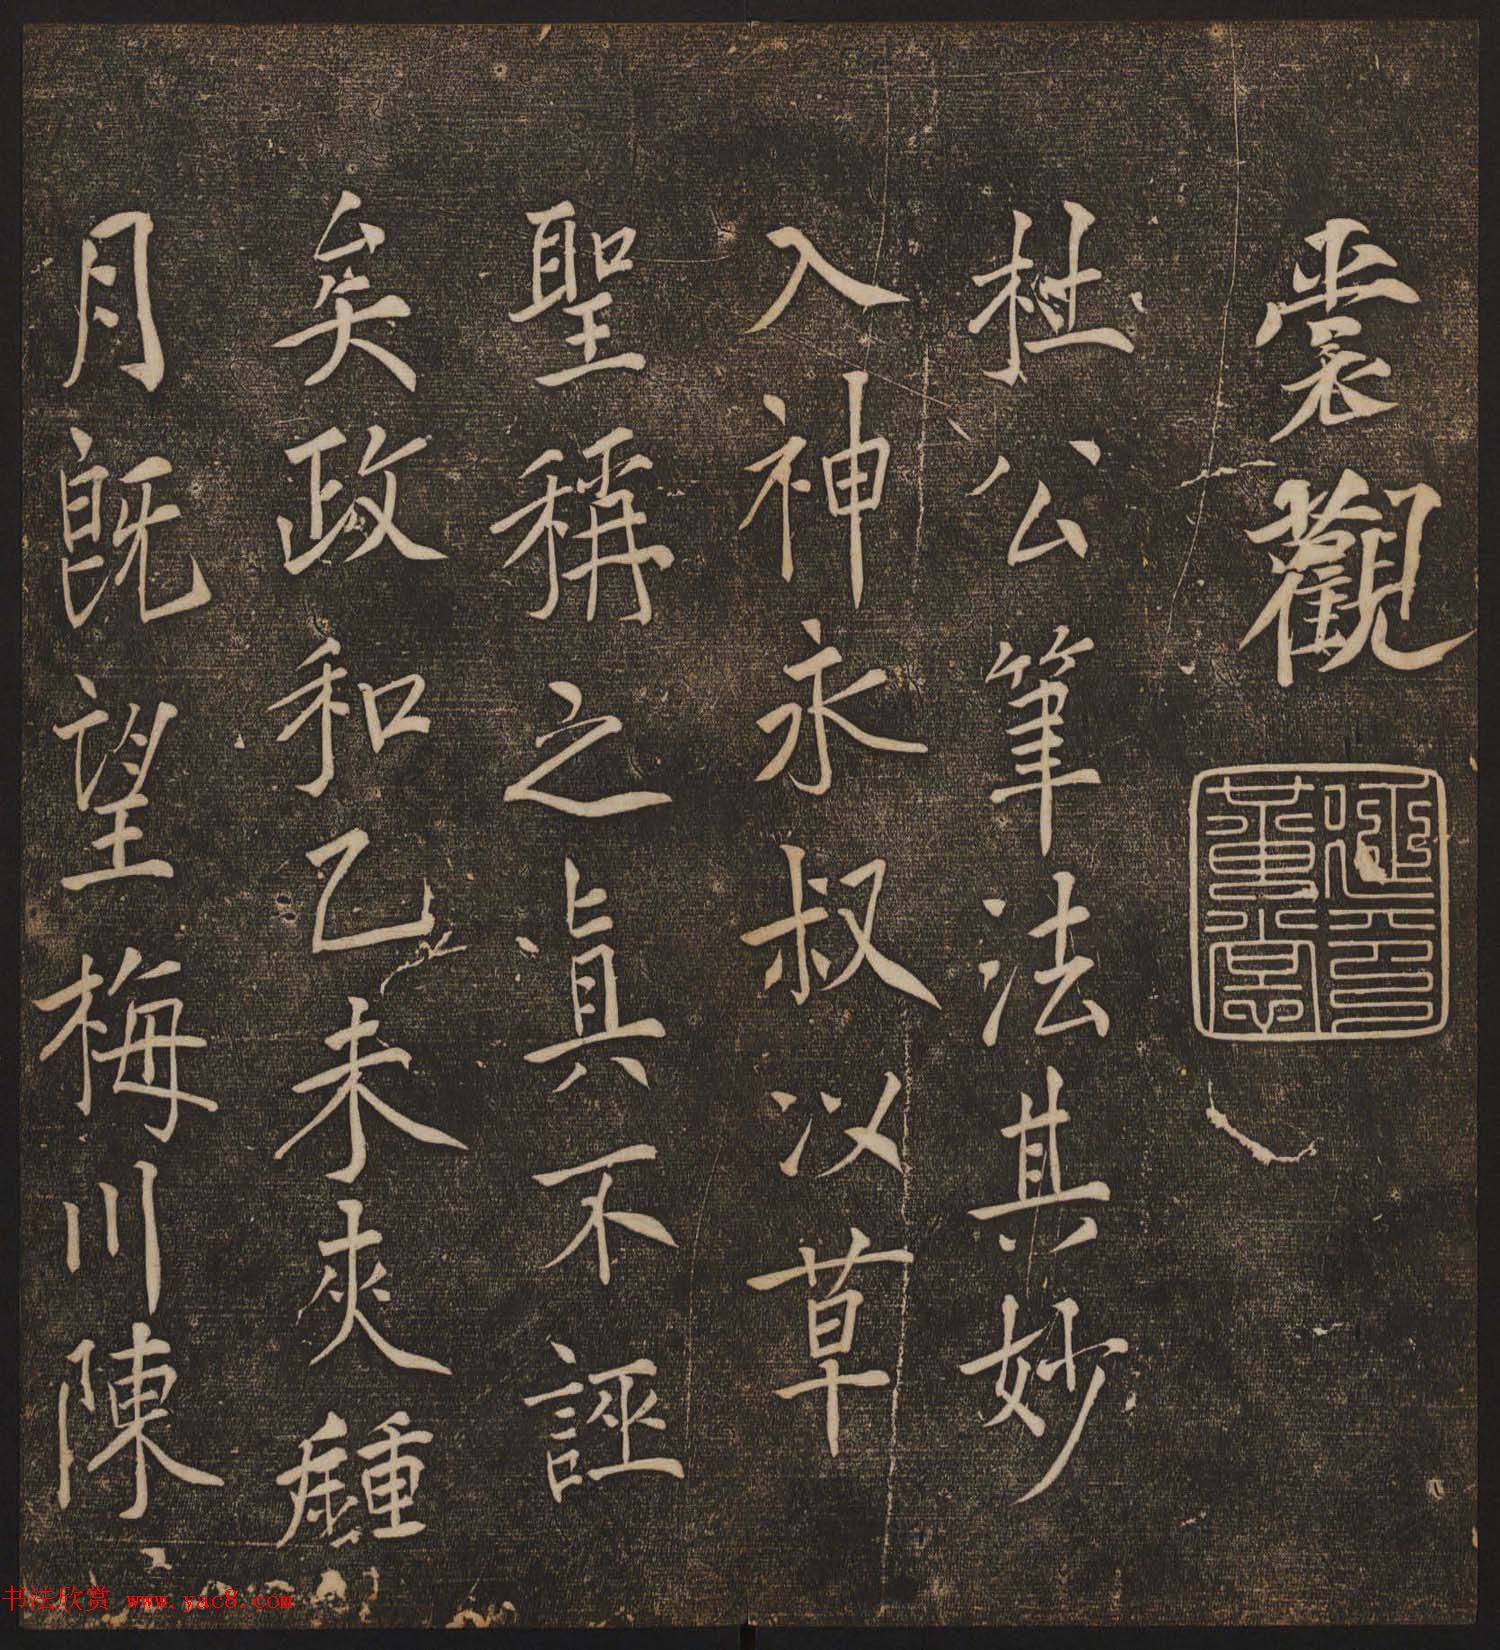 裳觀
杜公筆法其妙
入神永叔以草
聖稱之真不誣
矣政和乙未夾鍾
月既望梅川陳
书法欣赏 www.yac8.com